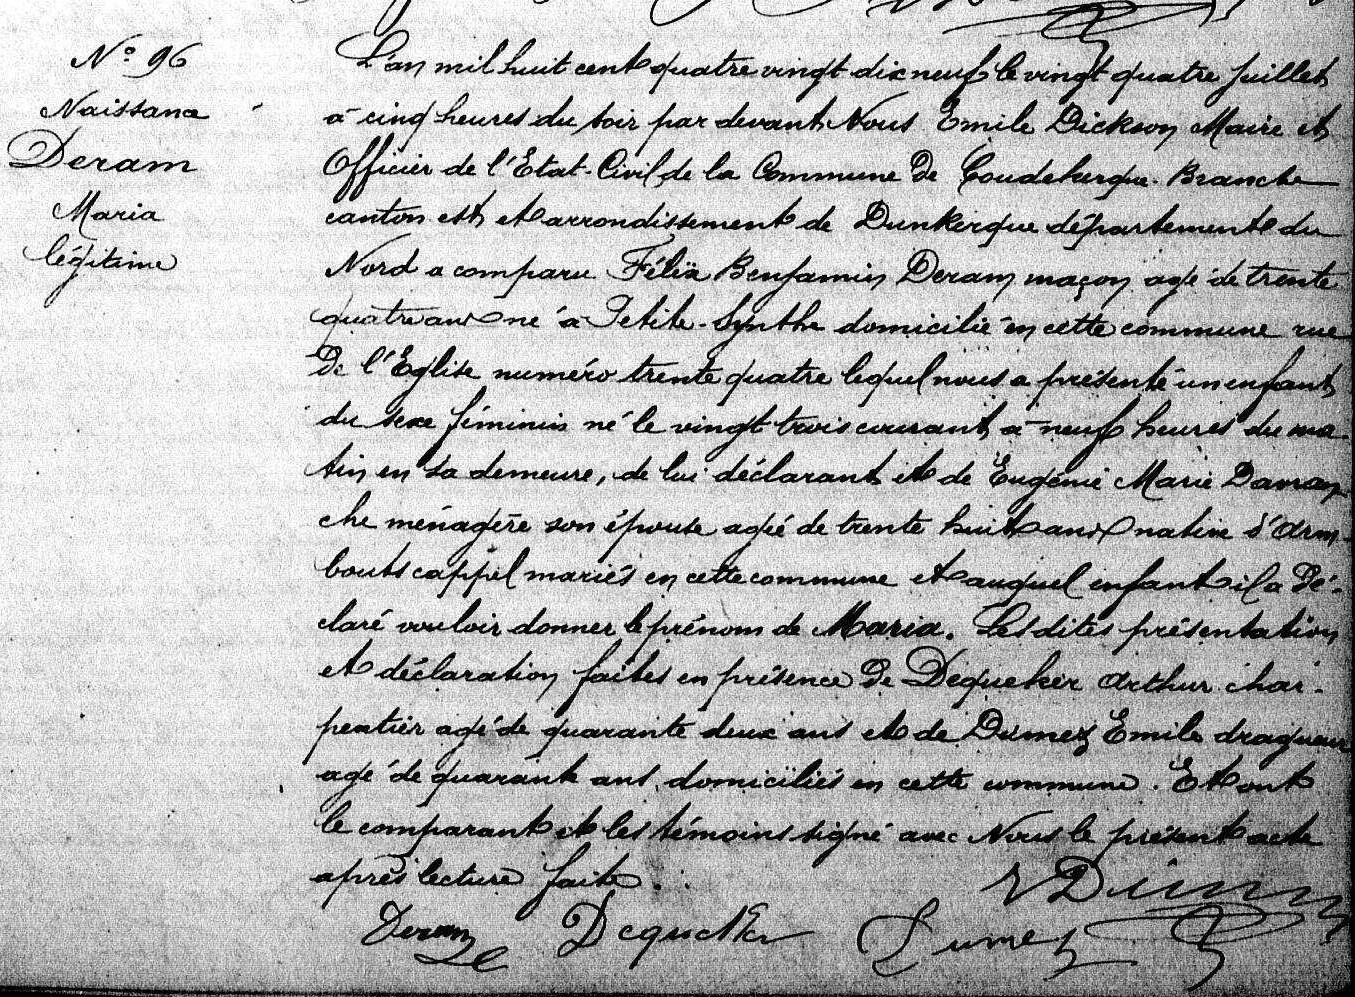 N° 96
Naissance
Deram
Maria
légitime
L'an mil huit cent quatre vingt dix neuf le vingt quatre Juillet
à cinq heures du soir par devant Nous Emile Dickson Maire et
Officier de l'Etat-Civil de la Commune de Coudekerque-Branche
canton est et arrondissement de Dunkerque département du
Nord a comparu Félix Benjamin Deram maçon agé de trente
quatre ans né à Petite-Synthe domicilié en cette commune rue
De l'Eglise numéro trente quatre lequel nous a présenté un enfant
du sexe féminin né le vingt trois courant à neuf heures du ma-
tin en sa demeure, de lui déclarant et de Eugénie Marie Davran
che ménagère son épouse agée de trente huit ans native d'Arm-
boutscappel mariés en cette commune et auquel enfant il a Dé-
claré vouloir donner le prénom de Maria. Lesdites présentation
et déclaration faites en présence de Dequeker Arthur char-
pentier agé de quarante deux ans et de Dumez Emile dragueur
agé de quarante ans, domiciliés en cette commune. Et ont
le comparant et les témoins signé avec Nous le présent acte
après lecture faite.
Deram Dequeker Dumez